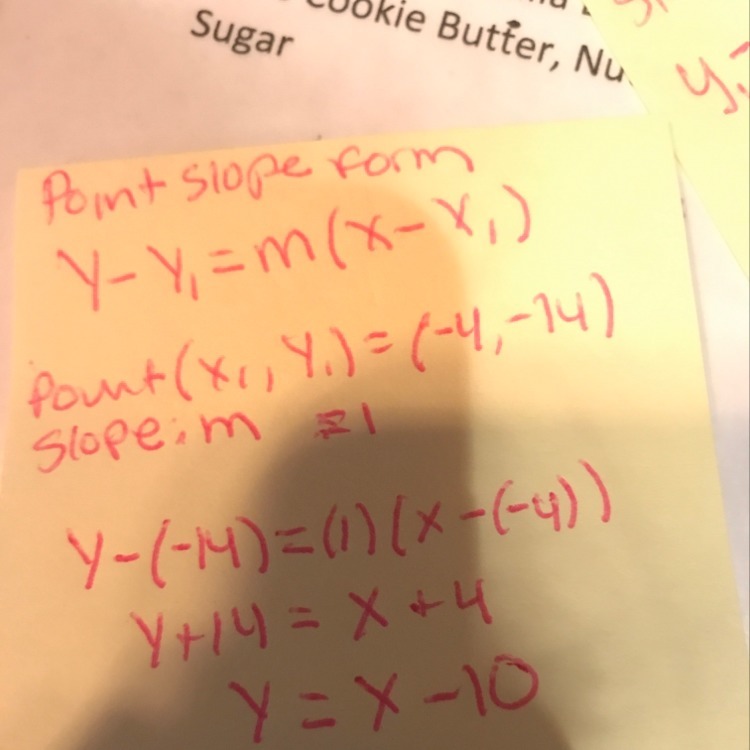 Cookie Butter, Nu
Sugar
y
Point slope form
y - y₁ = m(x - x₁)
Point (x₁, y₁) = (-4, -14)
Slope: m = 1
y - (-14) = (1)(x - (-4))
y + 14 = x + 4
y = x - 10